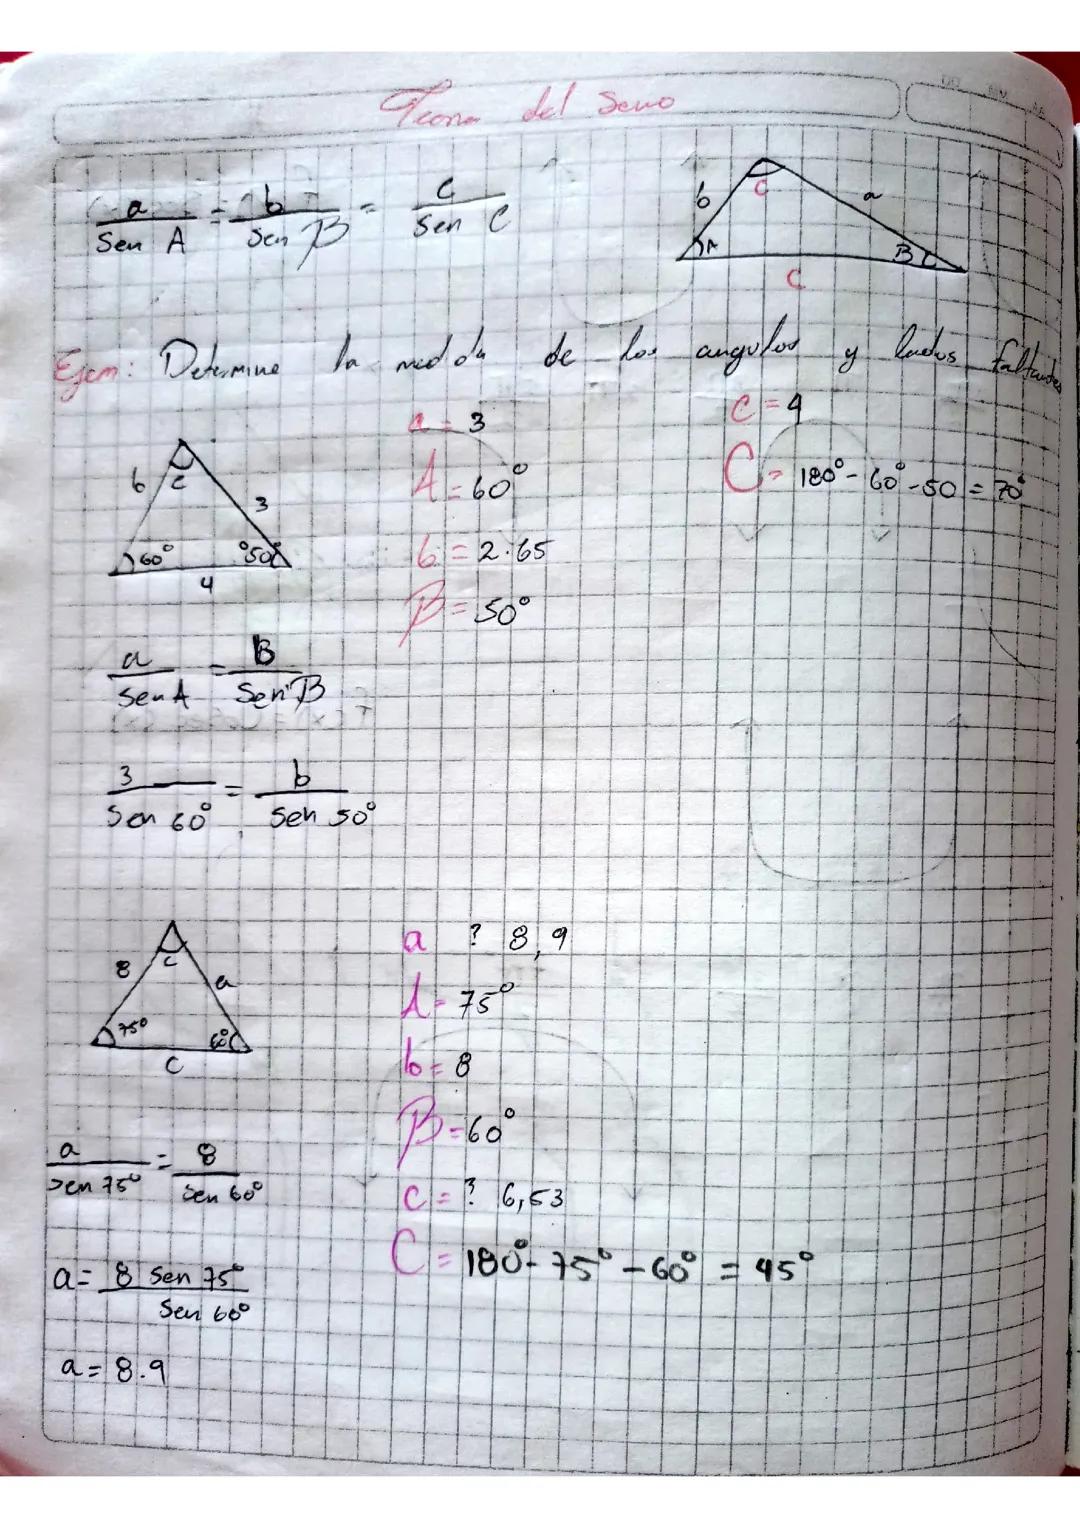 Teorema del Seno
a/Sen A = b/Sen B = c/Sen C
b C a
A B
c
Ejem: Determine la medida de los angulos y lados faltantes
a = 3 c = 4
b c 3
A = 60° C = 180° - 60° - 50 = 70°
60° 50°
4
b = 2.65
B = 50°
a/Sen A = B/Sen B
3/Sen 60° = b/Sen 50°
a ? 8,9
8 c a
A = 75°
75° 60°
c
b = 8
B = 60°
a/Sen 75° = 8/Sen 60°
c = ? 6,53
C = 180° - 75° - 60° = 45°
a = 8 Sen 75°/Sen 60°
a = 8.9